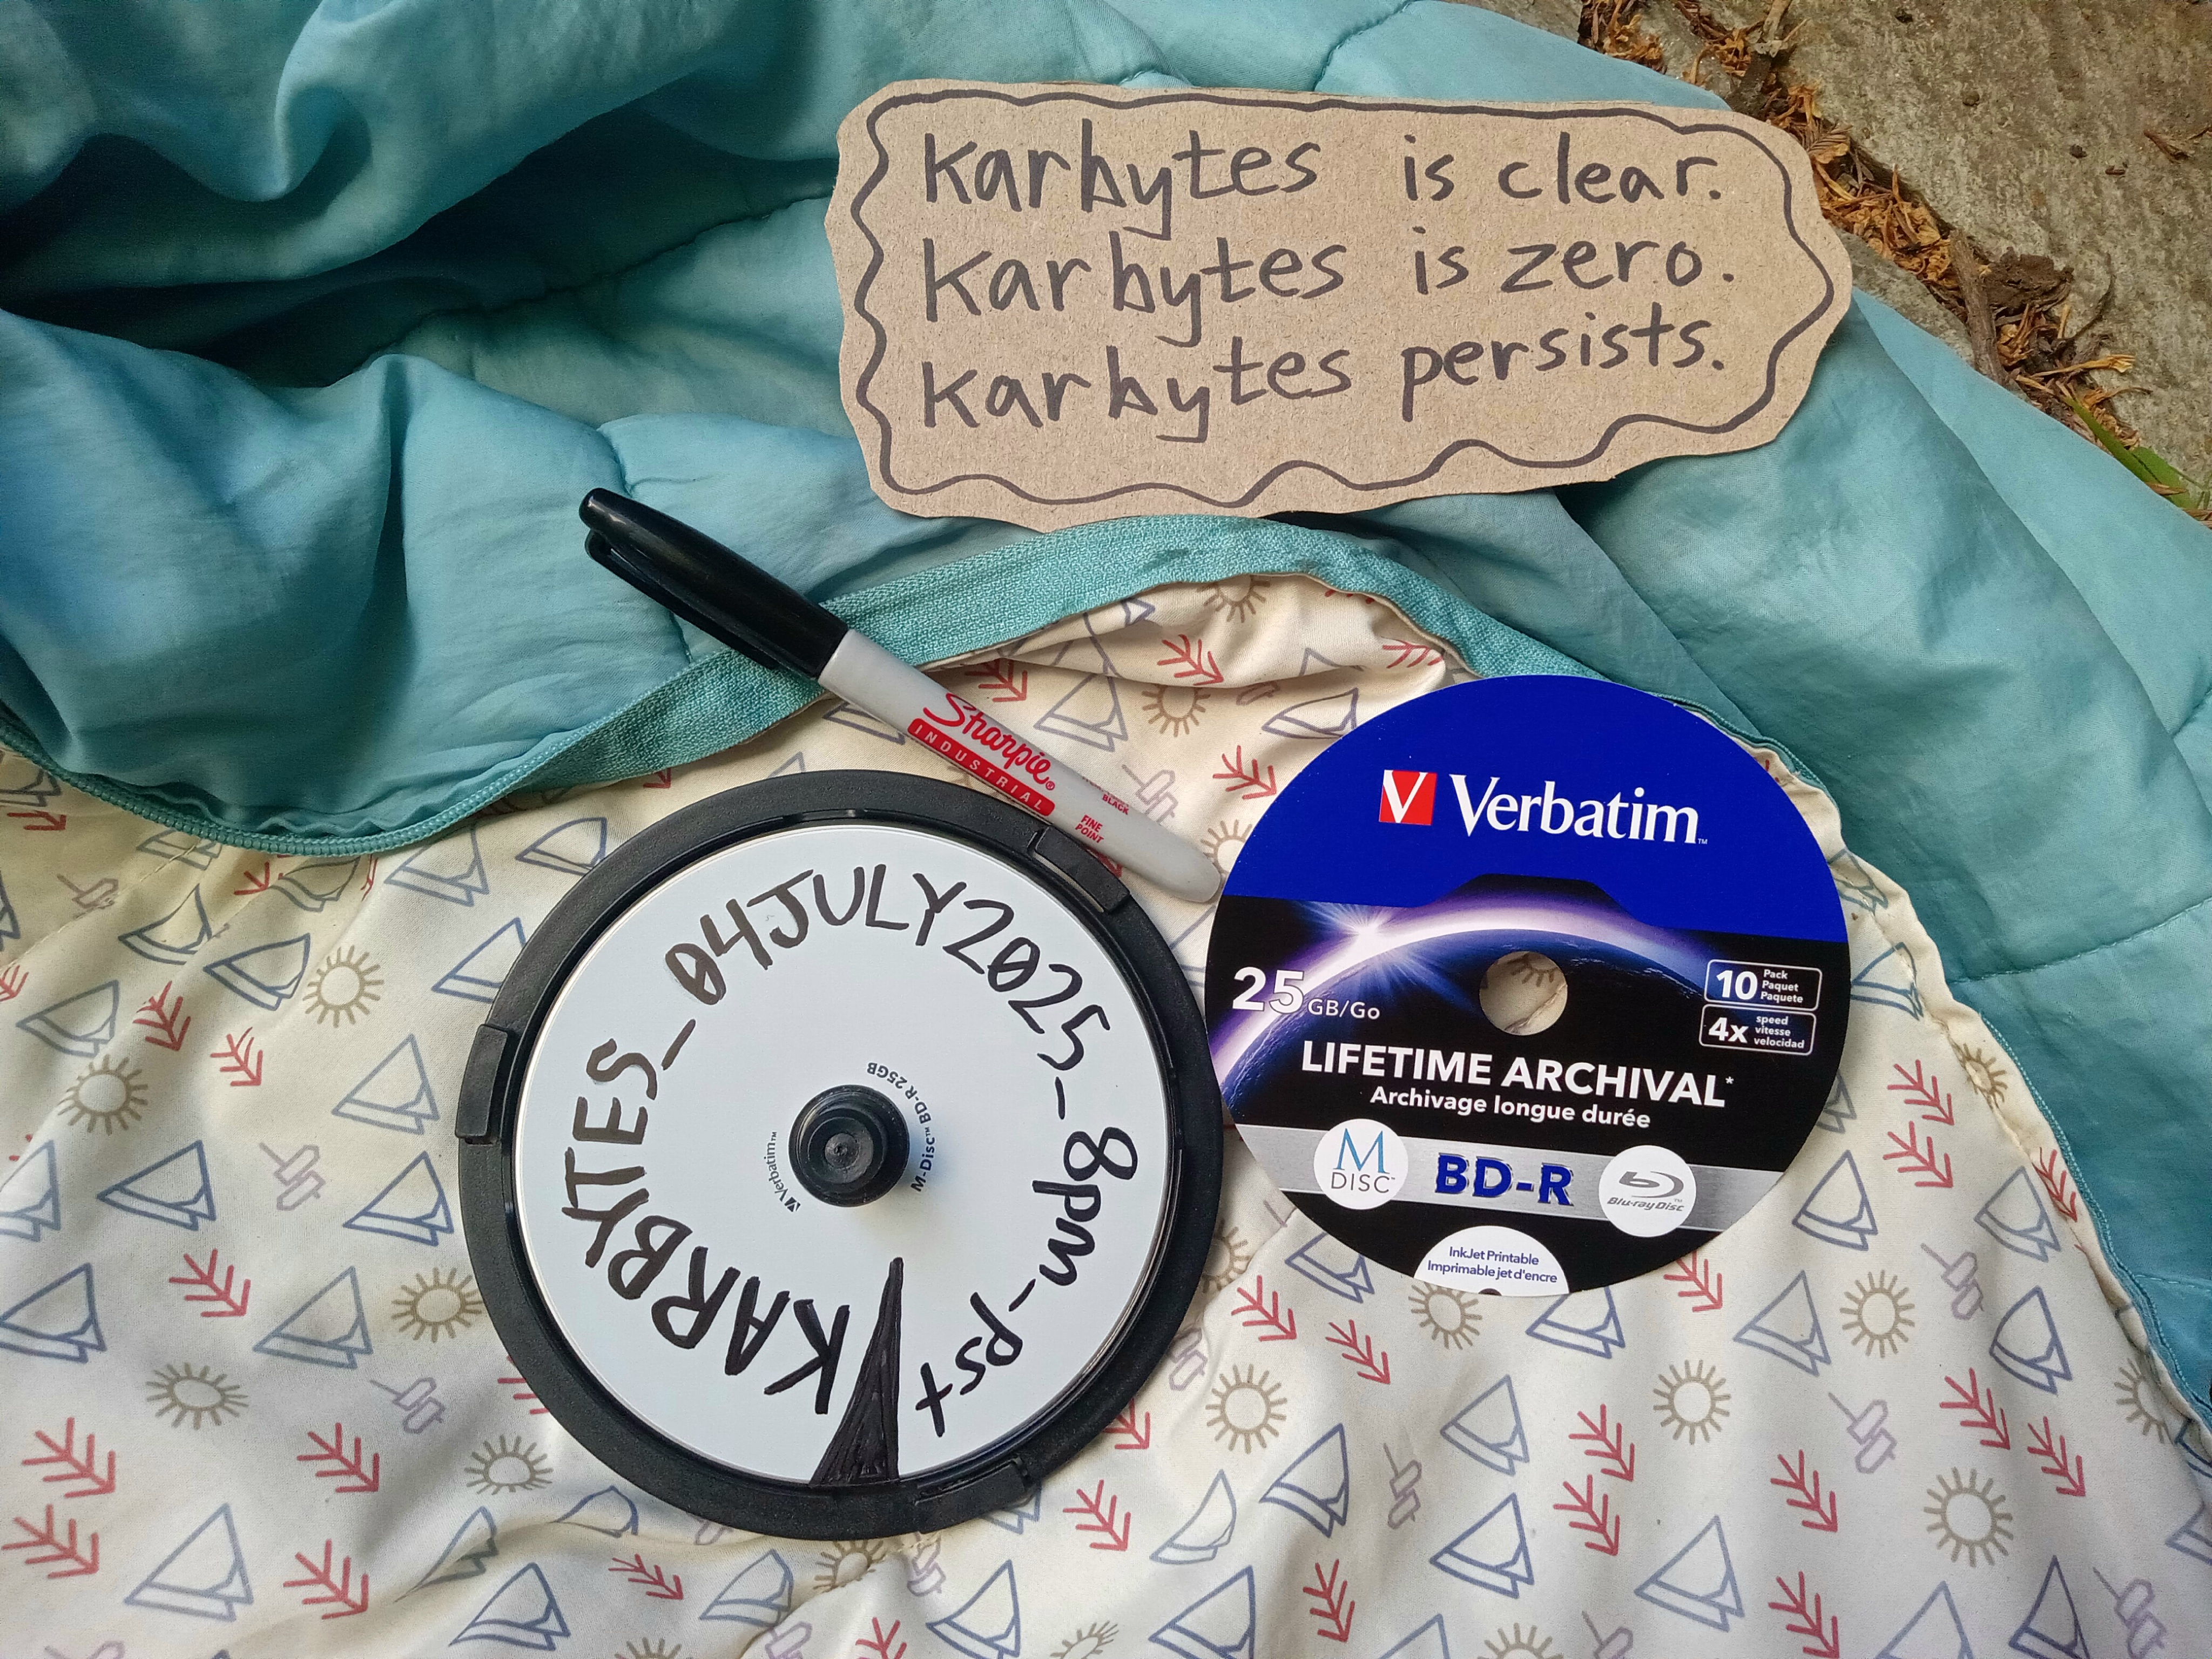 karbytes is clear.
karbytes is zero.
karbytes persists.
Sharpie®
INDUSTRIAL
BLACK
FINE
POINT
KARBYTES_04JULY2025_8pm_pst
Verbatim™
M-Disc™ BD-R 25GB
V Verbatim™
25 GB/Go
10 Pack
Paquet
Paquete
4x speed
vitesse
velocidad
LIFETIME ARCHIVAL*
Archivage longue durée
M
DISC™
BD-R
Blu-ray Disc™
InkJet Printable
Imprimable jet d'encre